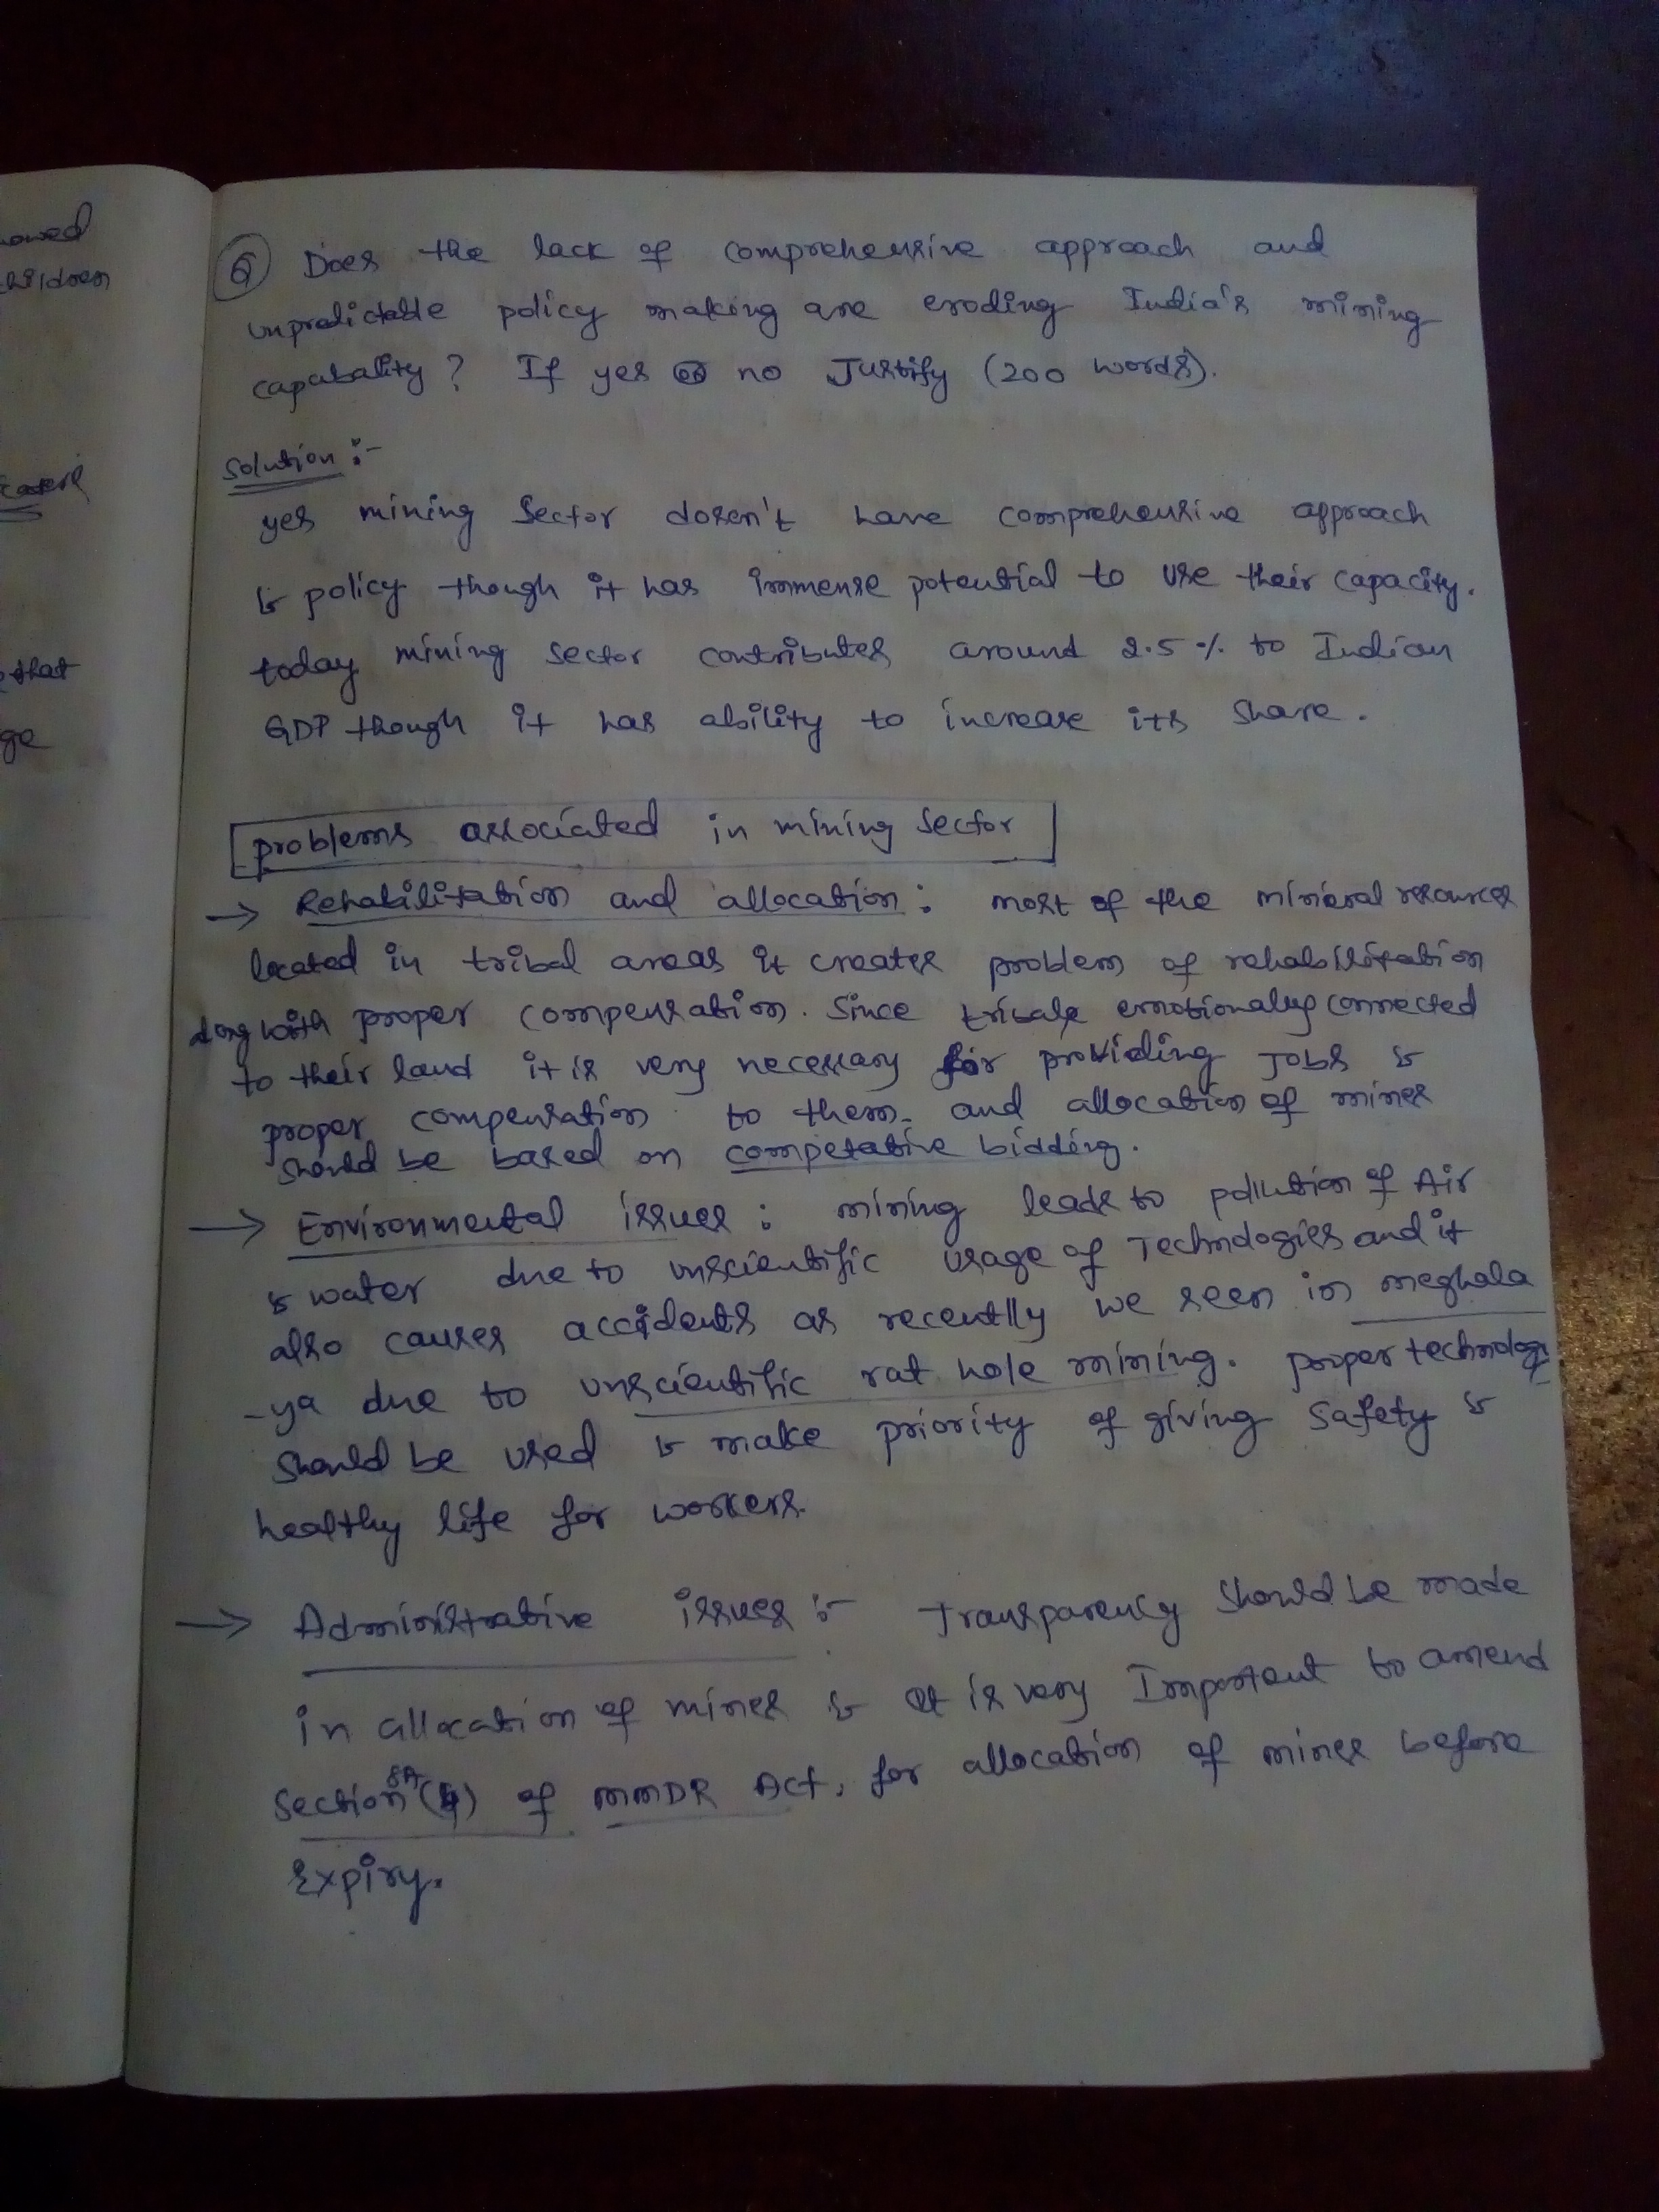 owed
children
that
ge
Q Does the lack of comprehensive approach and
unpredictable policy making are eroding India's mining
capabality? If yes or no Justify (200 words).
Solution :-
yes mining Sector dosen't have comprehensive approach
& policy though it has immense potential to use their capacity.
today mining sector contributes around 2.5% to Indian
GDP though it has ability to increase its share.
problems associated in mining sector
→ Rehabilitation and allocation : most of the mineral resources
located in tribal areas it creates problem of rehabilitation
along with proper compensation. Since tribals emotionally connected
to their land it is very necessary for providing Jobs &
proper compensation to them. and allocation of mines
should be based on competative bidding.
→ Environmental issues : mining leads to pollution of Air
& water due to unscientific usage of Technologies and it
also causes accidents as recently we seen in meghala
-ya due to unscientific rat hole mining. proper technology
should be used & make priority of giving safety &
healthy life for workers.
→ Administrative issues :- Transparency should be made
in allocation of mines & it is very Important to amend
section 8A(4) of MMDR Act, for allocation of mines before
Expiry.